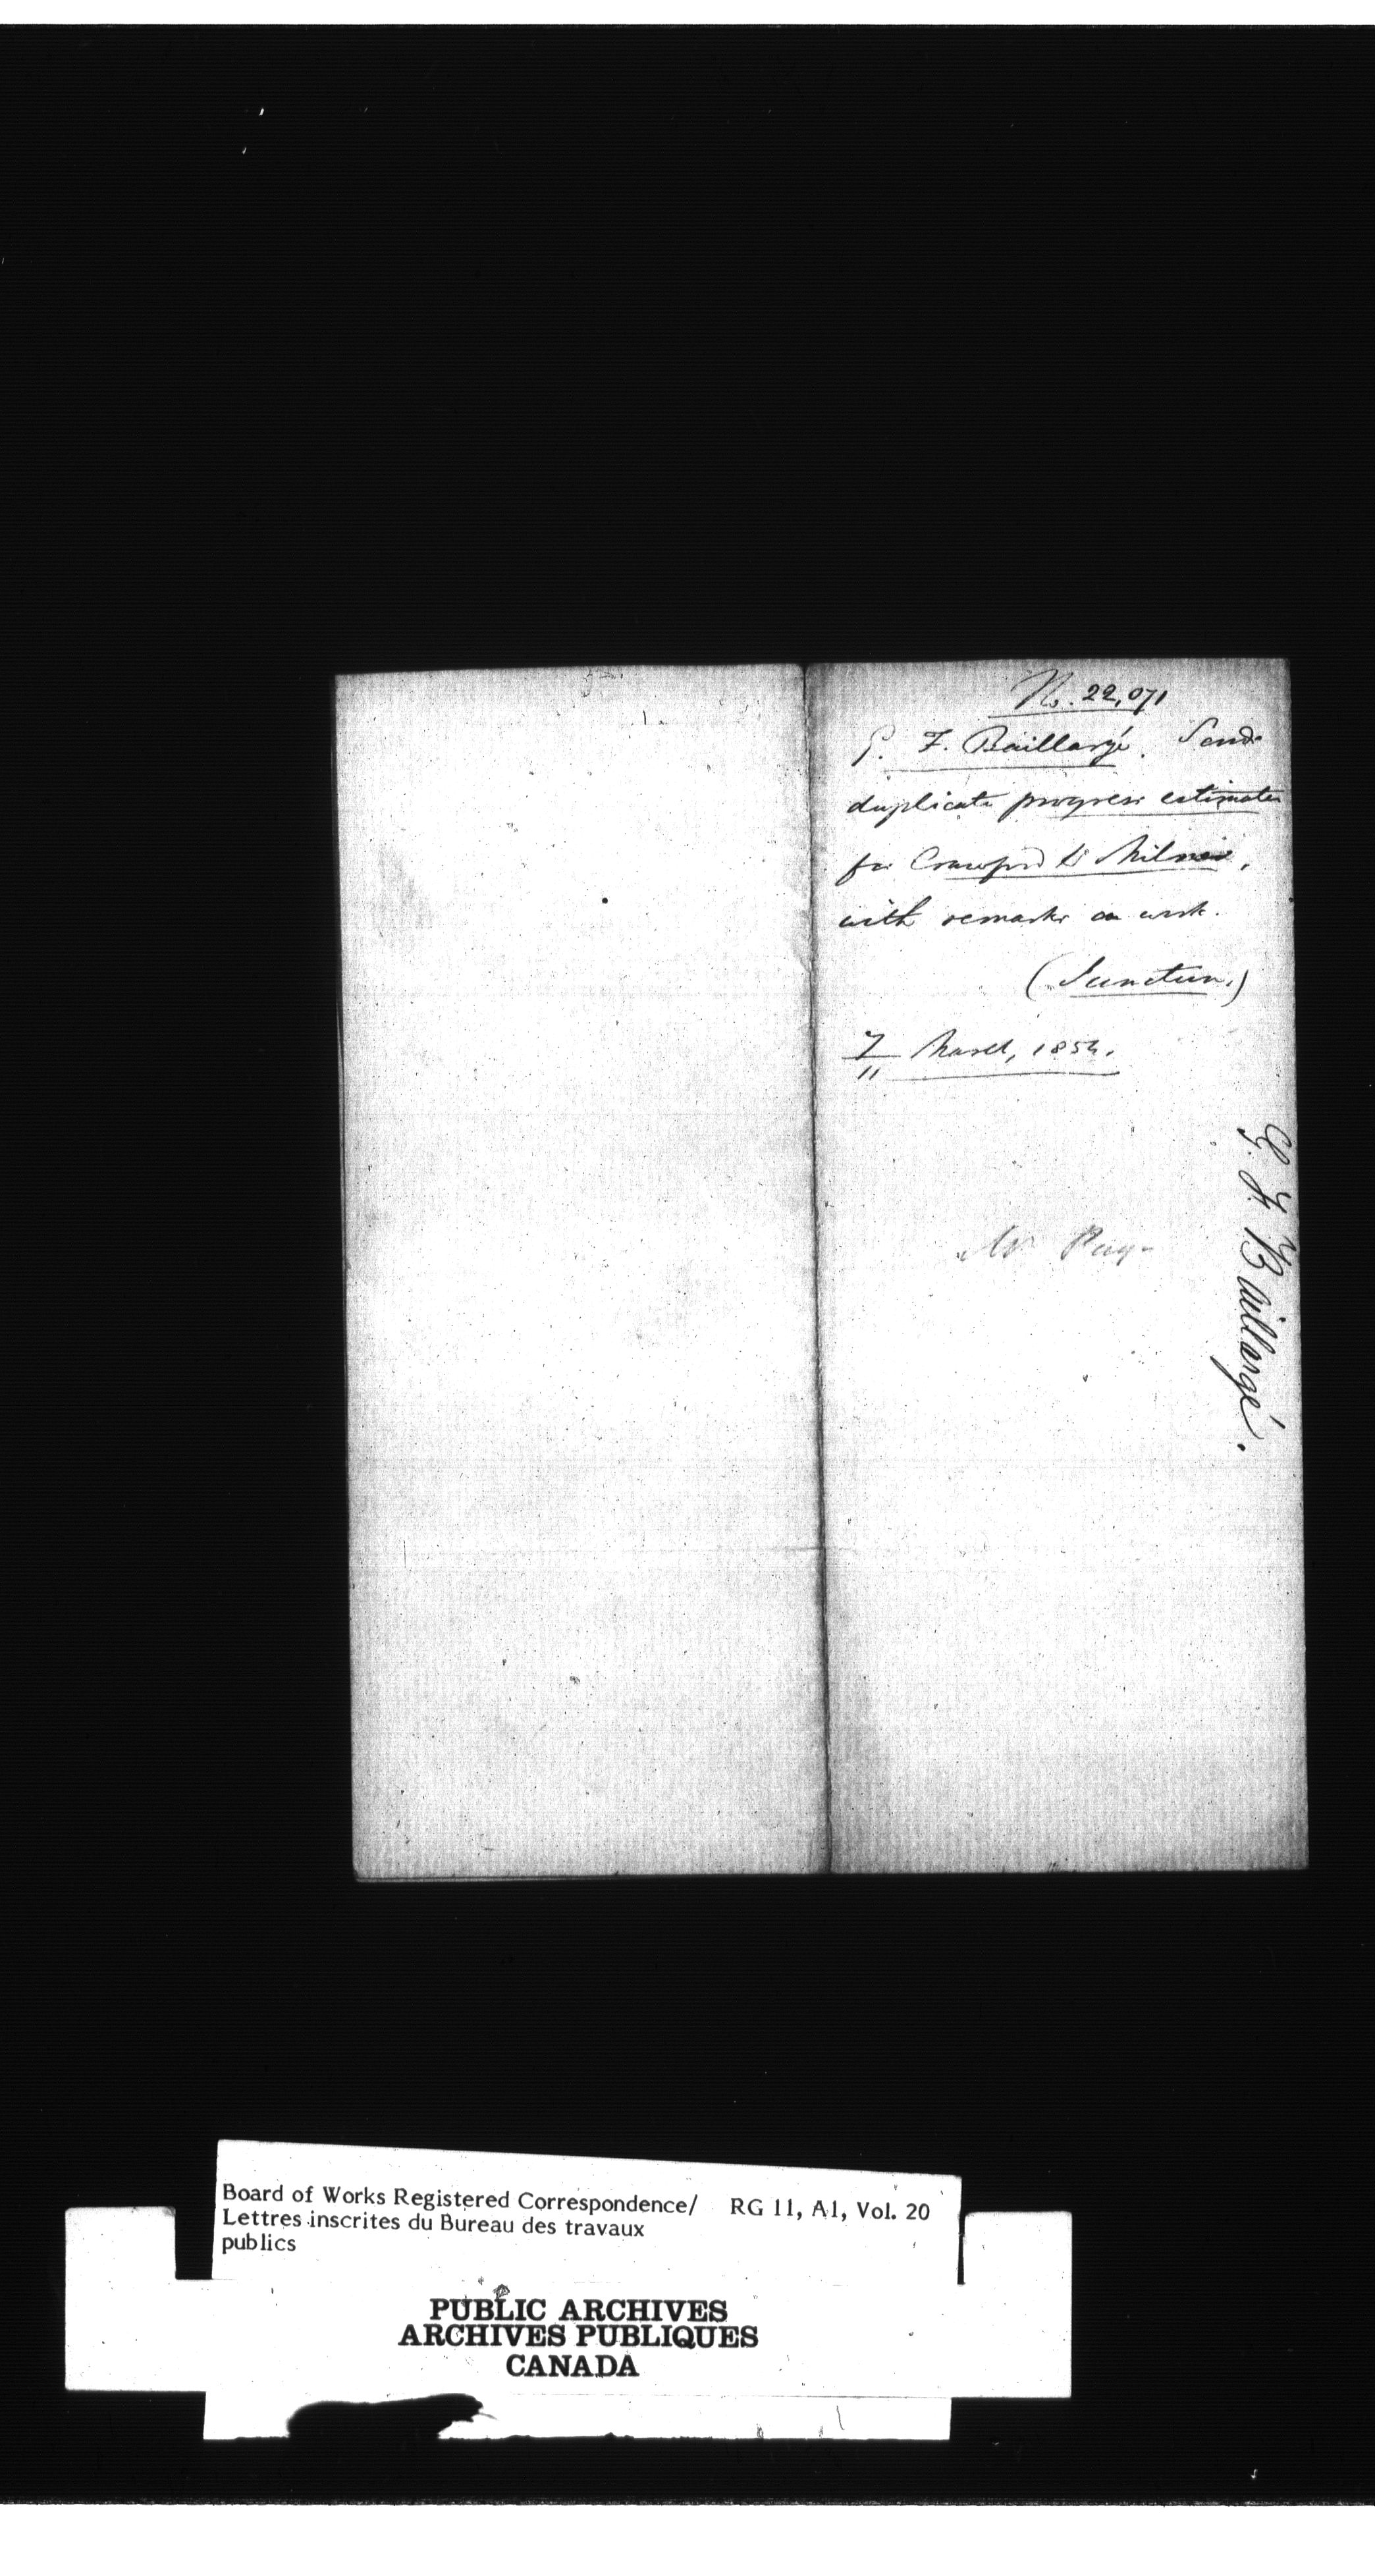 No. 22,071
G. F. Baillargé. Sends
duplicate progress estimates
for Crawford & Milner,
with remarks on work.
(Junction.)
7 March, 1854.
Mr Page
G. F. Baillargé.
Board of Works Registered Correspondence/ RG 11, A1, Vol. 20
Lettres inscrites du Bureau des travaux
publics
PUBLIC ARCHIVES
ARCHIVES PUBLIQUES
CANADA